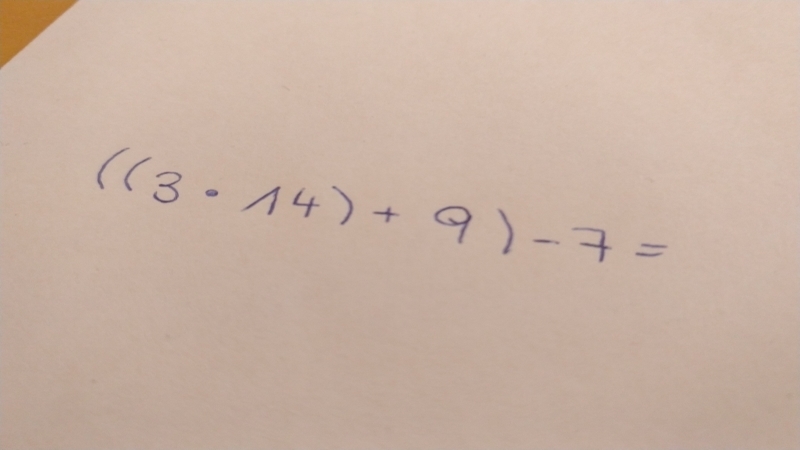 ((3 · 14) + 9) - 7 =